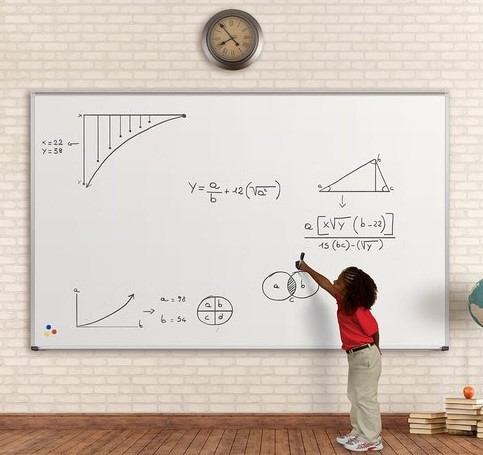 x=22
y=38
Y = a/b + 12 (√a²)
a b c
a [x√y (b-22)]
15(bc)-(√y)
a b
c
a
b
a = 98
b = 54
a b
c d